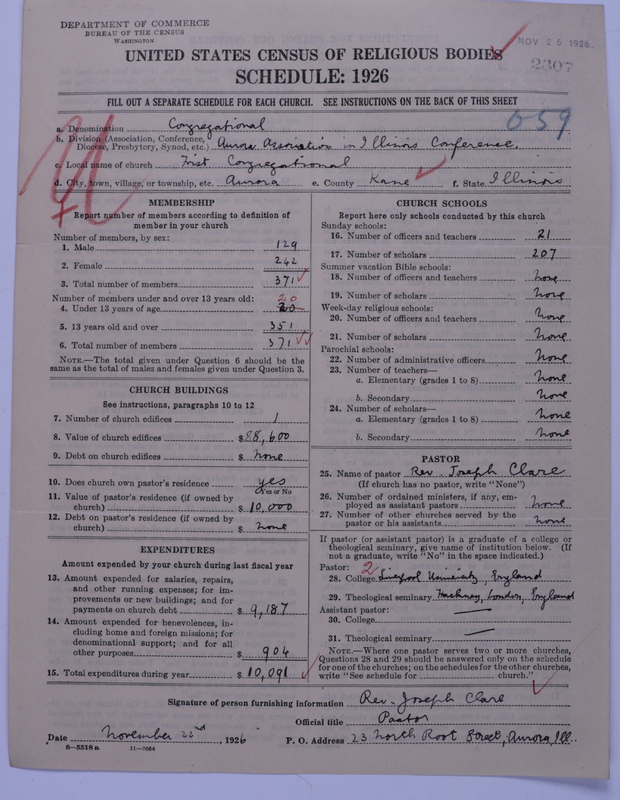 DEPARTMENT OF COMMERCE
BUREAU OF THE CENSUS
WASHINGTON
NOV 26 1926
UNITED STATES CENSUS OF RELIGIOUS BODIES
2307
SCHEDULE: 1926
FILL OUT A SEPARATE SCHEDULE FOR EACH CHURCH. SEE INSTRUCTIONS ON THE BACK OF THIS SHEET
059
a. Denomination Congregational
b. Division (Association, Conference, Diocese, Presbytery, Synod, etc.) Aurora Association in Illinois Conference.
c. Local name of church First Congregational
d. City, town, village, or township, etc. Aurora e. County Kane f. State Illinois
MEMBERSHIP
Report number of members according to definition of
member in your church
Number of members, by sex:
1. Male 129
2. Female 242
3. Total number of members 371
Number of members under and over 13 years old:
20
4. Under 13 years of age 20
5. 13 years old and over 351
6. Total number of members 371
NOTE.—The total given under Question 6 should be
same as the total of males and females given under Question 3.
CHURCH BUILDINGS
See instructions, paragraphs 10 to 12
7. Number of church edifices 1
8. Value of church edifices $88,600
9. Debt on church edifices $ none
10. Does church own pastor's residence yes
(Yes or No)
11. Value of pastor's residence (if owned by
church) $ 10,000
12. Debt on pastor's residence (if owned by
church) $ none
EXPENDITURES
Amount expended by your church during last fiscal year
13. Amount expended for salaries, repairs,
and other running expenses; for im-
provements or new buildings; and for
payments on church debt $ 9,187
14. Amount expended for benevolences, in-
cluding home and foreign missions; for
denominational support; and for all
other purposes $ 904
15. Total expenditures during year $ 10,091
CHURCH SCHOOLS
Report here only schools conducted by this church
Sunday schools:
16. Number of officers and teachers 21
17. Number of scholars 207
Summer vacation Bible schools:
18. Number of officers and teachers none
19. Number of scholars none
Week-day religious schools:
20. Number of officers and teachers none
21. Number of scholars none
Parochial schools:
22. Number of administrative officers none
23. Number of teachers—
a. Elementary (grades 1 to 8) none
b. Secondary none
24. Number of scholars—
a. Elementary (grades 1 to 8) none
b. Secondary none
PASTOR
25. Name of pastor Rev. Joseph Clare
(If church has no pastor, write "None")
26. Number of ordained ministers, if any, em-
ployed as assistant pastors none
27. Number of other churches served by the
pastor or his assistants none
If pastor (or assistant pastor) is a graduate of a college or
theological seminary, give name of institution below. (If
not a graduate, write "No" in the space indicated.)
Pastor: 2
28. College Liverpool University, England
29. Theological seminary Hackney, London, England
Assistant pastor:
30. College
31. Theological seminary
NOTE.—Where one pastor serves two or more churches,
Questions 28 and 29 should be answered only on the schedule
for one of the churches; on the schedules for the other churches,
write "See schedule for church."
Signature of person furnishing information Rev. Joseph Clare
Official title Pastor
Date November 23rd, 1926 P. O. Address 23 North Root Street, Aurora, Ill.
8—5518a 11—9034